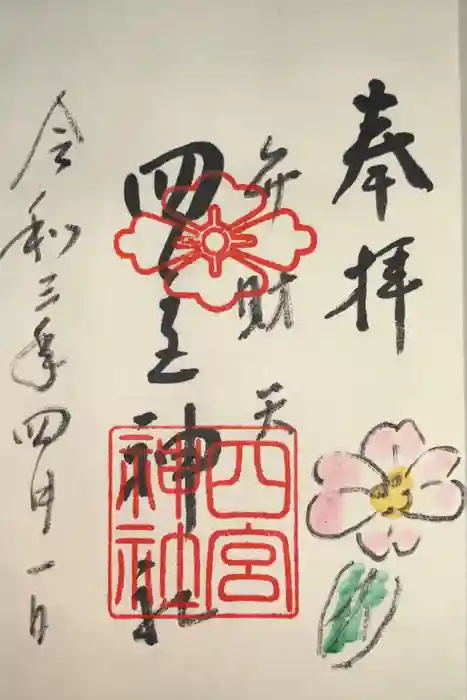 奉拝
弁財天
四之宮神社
四宮神社
令和三年四月一日